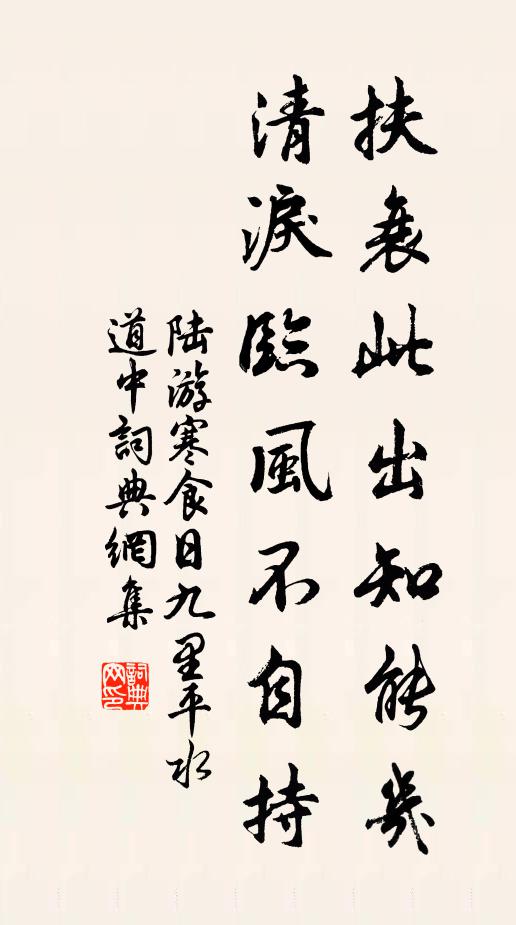 扶衰此出知能幾
清淚臨風不自持
陸游寒食日九里平水
道中詞典網集
詞典